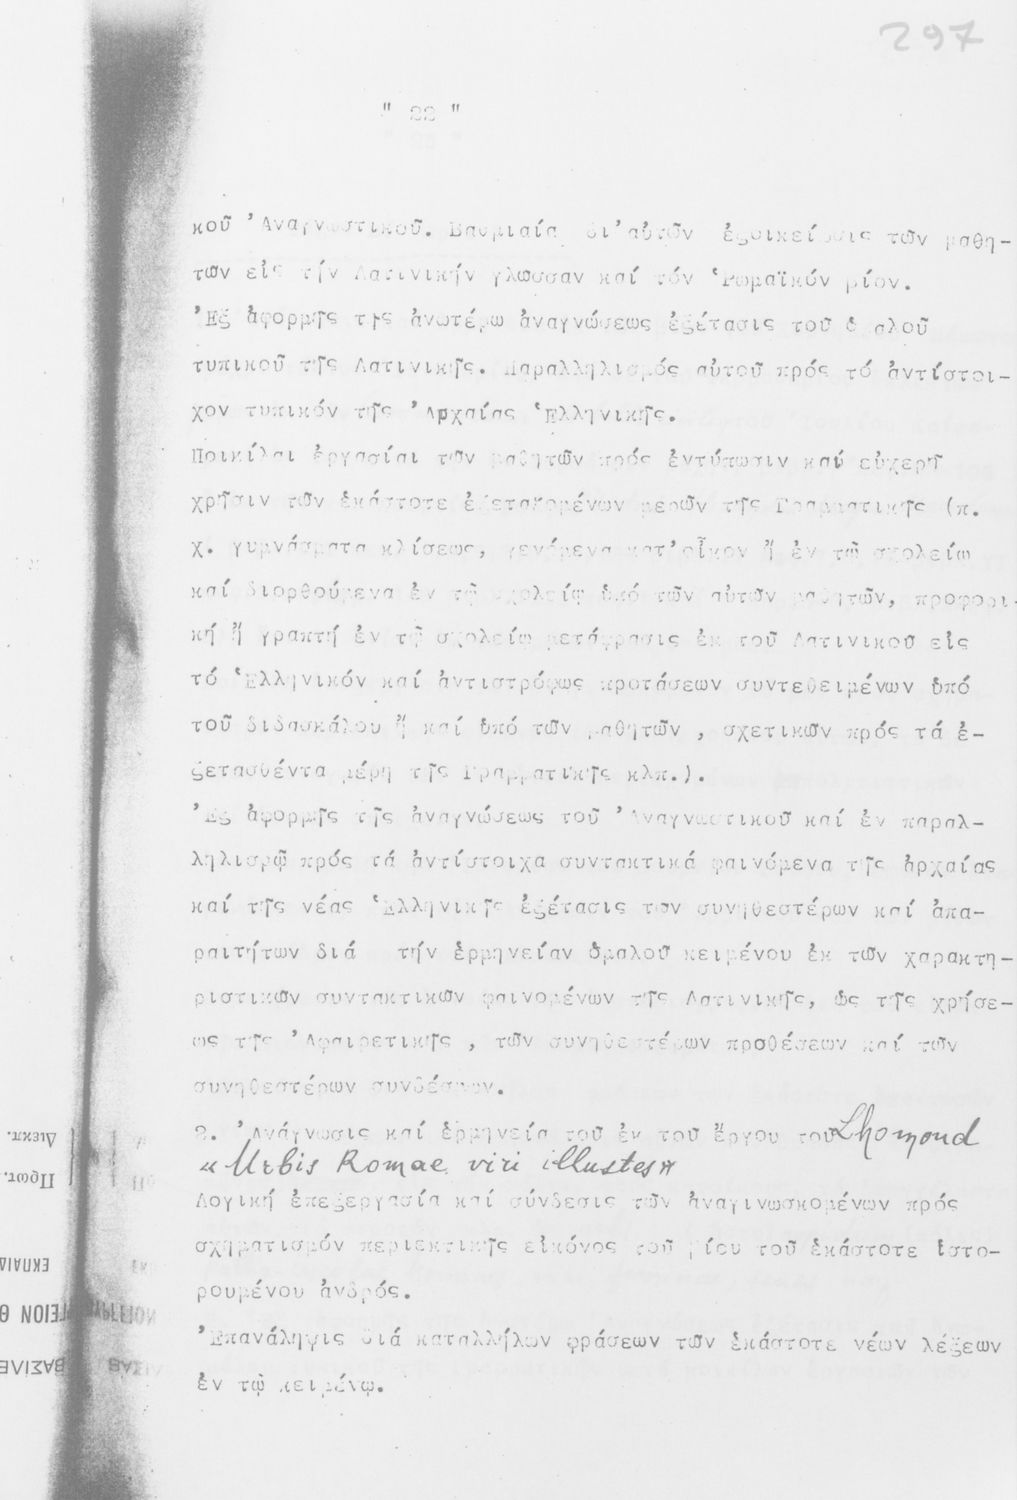 297
" 22 "
κοῦ Ἀναγνωστικοῦ. Βαθμιαία δι'αὐτῶν ἐξοικείωσις τῶν μαθη-
τῶν εἰς τήν Λατινικήν γλῶσσαν καί τόν Ῥωμαϊκόν βίον.
Ἐξ ἀφορμῆς τῆς ἀνωτέρω ἀναγνώσεως ἐξέτασις τοῦ ὁμαλοῦ
τυπικοῦ τῆς Λατινικῆς. Παραλληλισμός αὐτοῦ πρός τό ἀντίστοι-
χον τυπικόν τῆς Ἀρχαίας Ἑλληνικῆς.
Ποικίλαι ἐργασίαι τῶν μαθητῶν πρός ἐντύπωσιν καί εὐχερῆ
χρῆσιν τῶν ἑκάστοτε ἐξεταζομένων μερῶν τῆς Γραμματικῆς (π.
χ. γυμνάσματα κλίσεως, γενόμενα κατ'οἶκον ἤ ἐν τῷ σχολείῳ
καί διορθούμενα ἐν τῷ σχολείῳ ὑπό τῶν αὐτῶν μαθητῶν, προφορι-
κή ἤ γραπτή ἐν τῷ σχολείῳ μετάφρασις ἐκ τοῦ Λατινικοῦ εἰς
τό Ἑλληνικόν καί ἀντιστρόφως προτάσεων συντεθειμένων ὑπό
τοῦ διδασκάλου ἤ καί ὑπό τῶν μαθητῶν , σχετικῶν πρός τά ἐ-
ξετασθέντα μέρη τῆς Γραμματικῆς κλπ.).
Ἐξ ἀφορμῆς τῆς ἀναγνώσεως τοῦ Ἀναγνωστικοῦ καί ἐν παραλ-
ληλισμῷ πρός τά ἀντίστοιχα συντακτικά φαινόμενα τῆς ἀρχαίας
καί τῆς νέας Ἑλληνικῆς ἐξέτασις τῶν συνηθεστέρων καί ἀπα-
ραιτήτων διά τήν ἑρμηνείαν ὁμαλοῦ κειμένου ἐκ τῶν χαρακτη-
ριστικῶν συντακτικῶν φαινομένων τῆς Λατινικῆς, ὡς τῆς χρήσε-
ως τῆς Ἀφαιρετικῆς , τῶν συνηθεστέρων προθέσεων καί τῶν
συνηθεστέρων συνδέσμων.
2. Ἀνάγνωσις καί ἑρμηνεία τοῦ ἐκ τοῦ ἔργου τοῦ Lhomond
« Urbis Romae viri illustes»
Λογική ἐπεξεργασία καί σύνδεσις τῶν ἀναγινωσκομένων πρός
σχηματισμόν περιεκτικῆς εἰκόνος τοῦ βίου τοῦ ἑκάστοτε ἱστο-
ρουμένου ἀνδρός.
Ἐπανάληψις διά καταλλήλων φράσεων τῶν ἑκάστοτε νέων λέξεων
ἐν τῷ κειμένῳ.
Διεκπ.
Πρωτ.
ΕΚΠΑΙΔ
ΒΑΣΙΛΕ